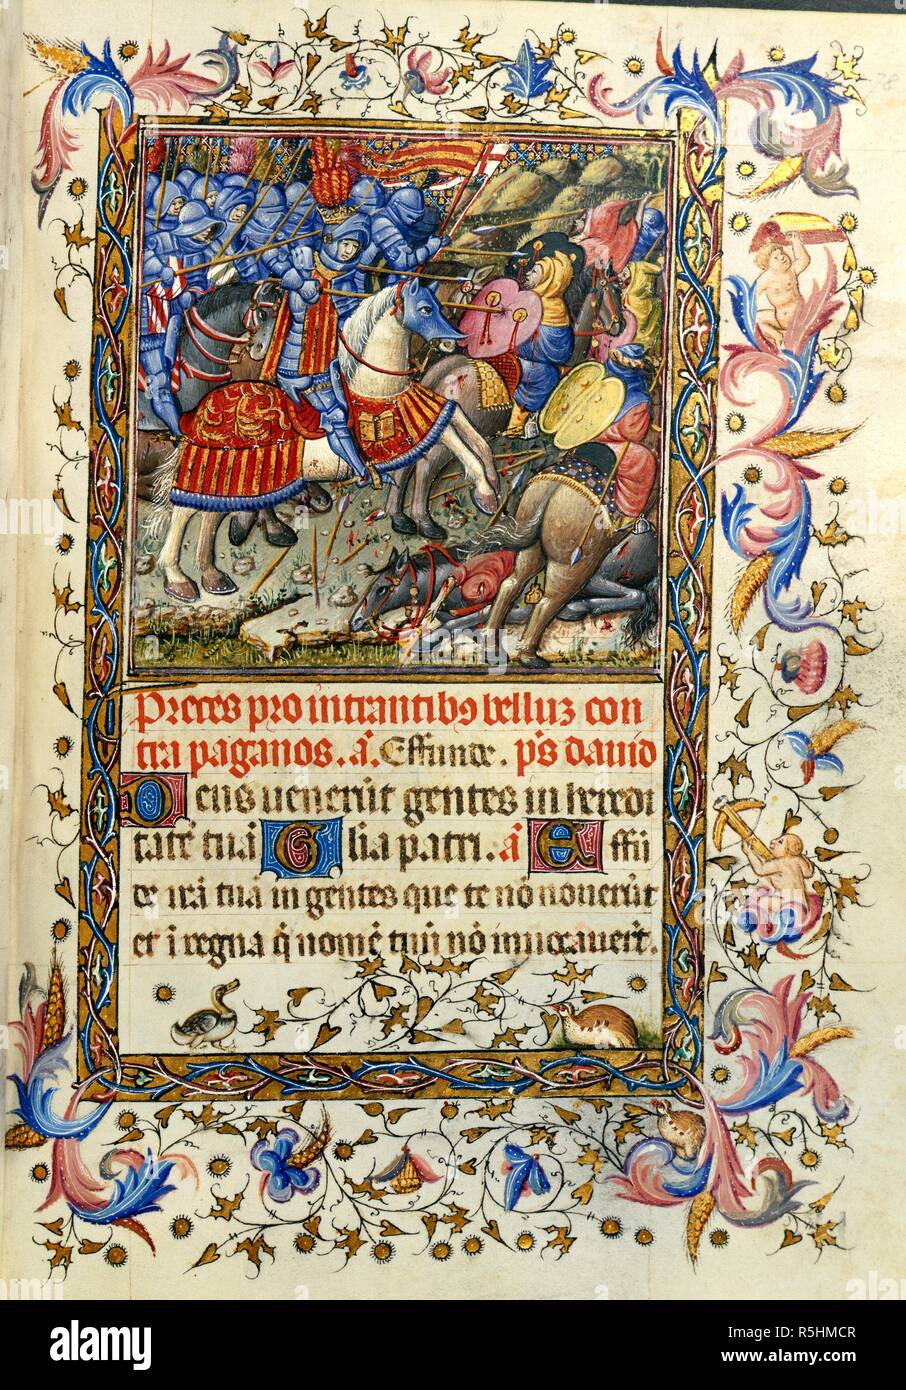 78
Preces pro intrantibꝯ belluꝫ con
tra paganos. a᷑. Effunde. p̄s dauid
Deus uenerūt gentes in heredi
tatē tuā Glia patri. a᷑ Effū
de irā tuā in gentes que te nō nouerūt
et ī regna q̄ nomē tuū nō inuocauerūt.
alamy
Image ID: R5HMCR
www.alamy.com